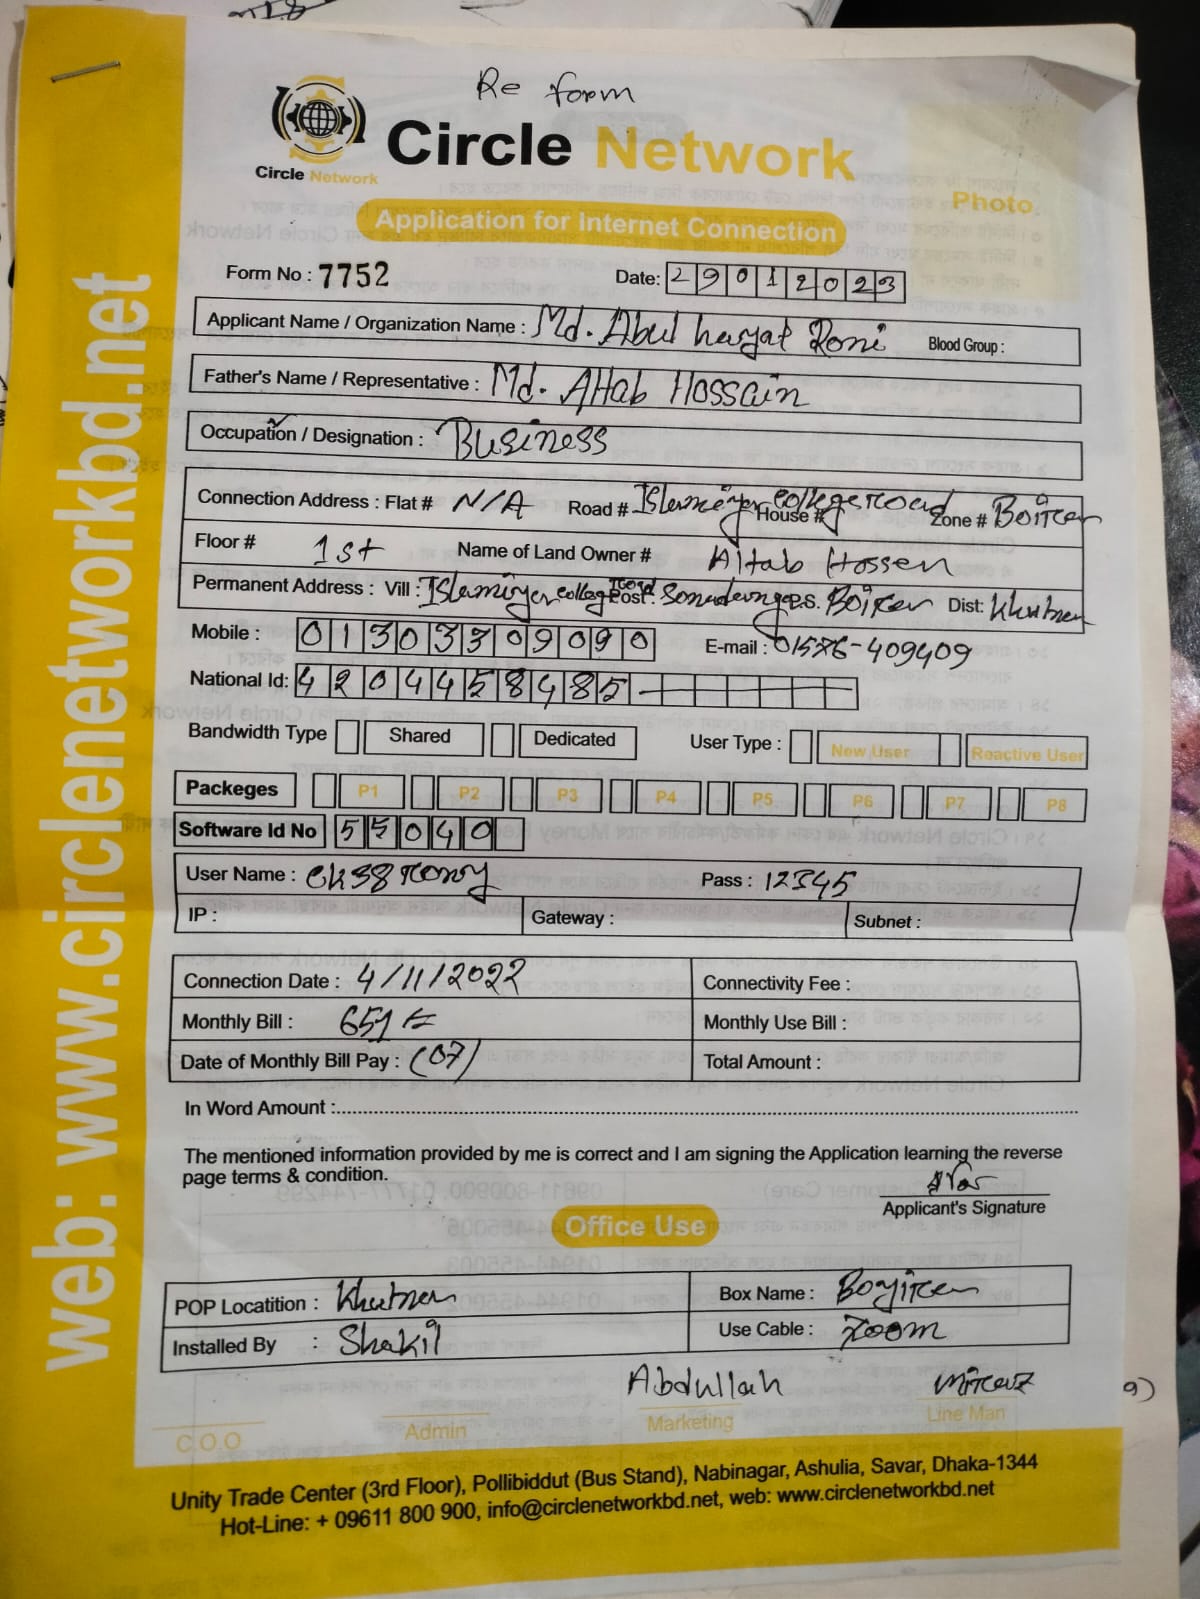 Re form
Circle Network
Circle Network
Photo
Application for Internet Connection
Form No : 7752 Date: 29012023
Applicant Name / Organization Name : Md. Abul hayat Roni Blood Group :
Father's Name / Representative : Md. Altab Hossain
Occupation / Designation : Business
Connection Address : Flat # N/A Road # Islamiya college road House # Zone # Boira
Floor # 1st Name of Land Owner # Altab Hossen
Permanent Address : Vill : Islamiya college road Post : P.S. Boira Dist: Khulna
Mobile : 01303309090 E-mail : 01576-409409
National Id: 4204458485
Bandwidth Type Shared Dedicated User Type : New User Reactive User
Packeges P1 P2 P3 P4 P5 P6 P7 P8
Software Id No 55040
User Name : Pass : 12345
IP : Gateway : Subnet :
Connection Date : 4/11/2022 Connectivity Fee :
Monthly Bill : 651 Monthly Use Bill :
Date of Monthly Bill Pay : (07) Total Amount :
In Word Amount :
The mentioned information provided by me is correct and I am signing the Application learning the reverse
page terms & condition.
Applicant's Signature
Office Use
POP Locatition : Khulna Box Name : Boyira
Installed By : Shakil Use Cable : 200m
Abdullah
C.O.O Admin Marketing Line Man
Unity Trade Center (3rd Floor), Pollibiddut (Bus Stand), Nabinagar, Ashulia, Savar, Dhaka-1344
Hot-Line: + 09611 800 900, info@circlenetworkbd.net, web: www.circlenetworkbd.net
web: www.circlenetworkbd.net